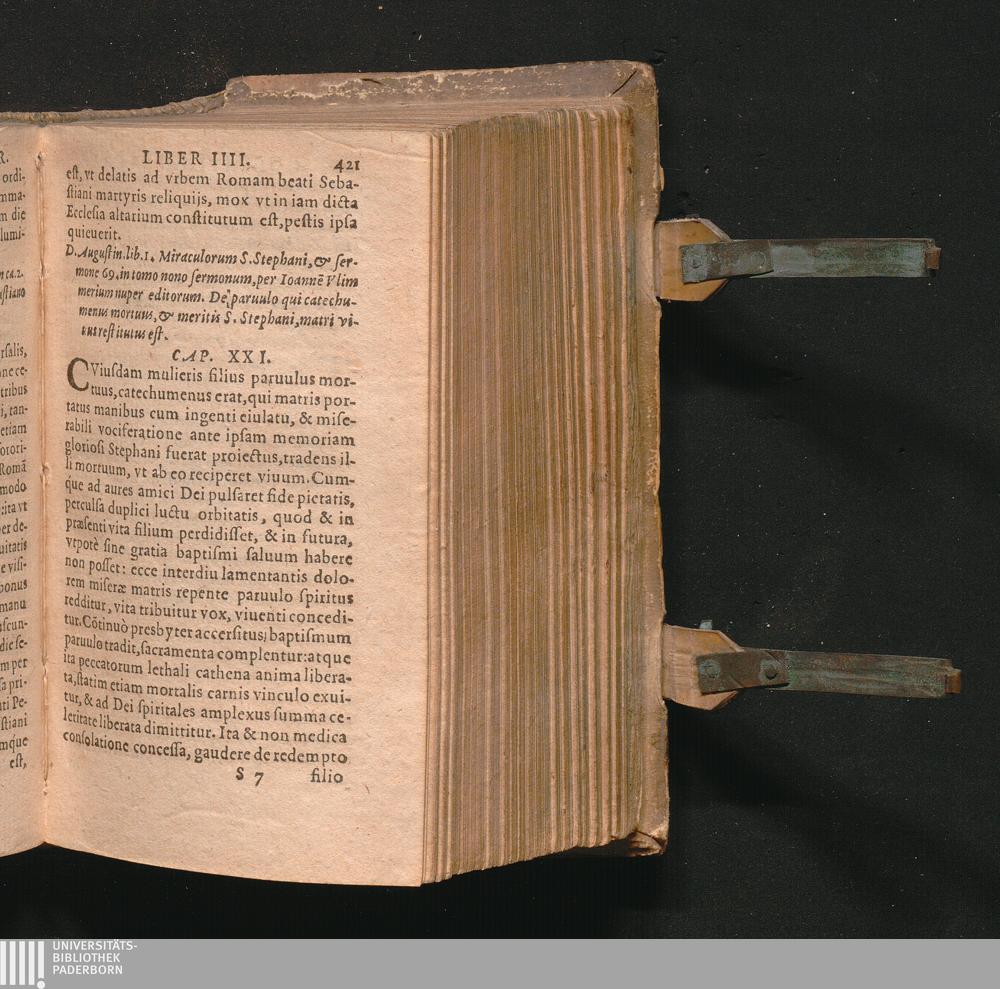 R.
ordi-
mma-
m die
lumi-
n ca.2.
ustiano
rsalis,
one ce-
tribus
i, tan-
etiam
sorori-
Romā
modo
ita vt
er de-
uitatis
e visi-
bonus
manu
uscun-
die se-
m per
sa pri-
ti Pe-
stiani
mque
est,
LIBER IIII. 421
est, vt delatis ad vrbem Romam beati Seba-
stiani martyris reliquijs, mox vt in iam dicta
Ecclesia altarium constitutum est, pestis ipsa
quieuerit.
D. Augustin. lib. 1. Miraculorum S. Stephani, & ser-
mone 69. in tomo nono sermonum, per Ioannē Vlim
merium nuper editorum. De paruulo qui catechu-
menus mortuus, & meritis S. Stephani, matri vi-
uus restitutus est.
CAP. XXI.
CViusdam mulieris filius paruulus mor-
tuus, catechumenus erat, qui matris por-
tatus manibus cum ingenti eiulatu, & mise-
rabili vociferatione ante ipsam memoriam
gloriosi Stephani fuerat proiectus, tradens il-
li mortuum, vt ab eo reciperet viuum. Cum-
que ad aures amici Dei pulsaret fide pietatis,
perculsa duplici luctu orbitatis, quod & in
præsenti vita filium perdidisset, & in futura,
vtpotè sine gratia baptismi saluum habere
non posset: ecce interdiu lamentantis dolo-
rem miseræ matris repente paruulo spiritus
redditur, vita tribuitur vox, viuenti concedi-
tur. Cōtinuò presbyter accersitus, baptismum
paruulo tradit, sacramenta complentur: atque
ita peccatorum lethali cathena anima libera-
ta, statim etiam mortalis carnis vinculo exui-
tur, & ad Dei spiritales amplexus summa ce-
leritate liberata dimittitur. Ita & non medica
consolatione concessa, gaudere de redempto
S 7 filio
UNIVERSITÄTS-
BIBLIOTHEK
PADERBORN